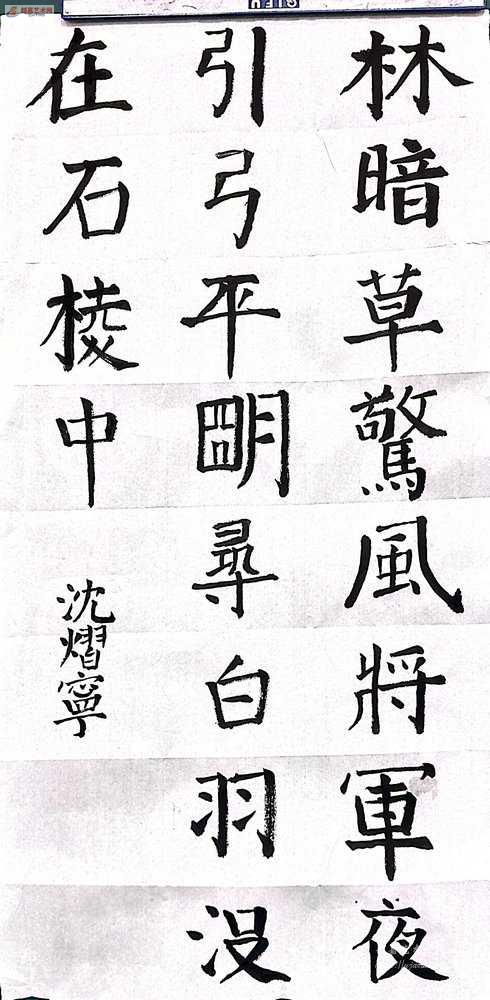 林暗草驚風將軍夜
引弓平明尋白羽没
在石棱中
沈熠寧